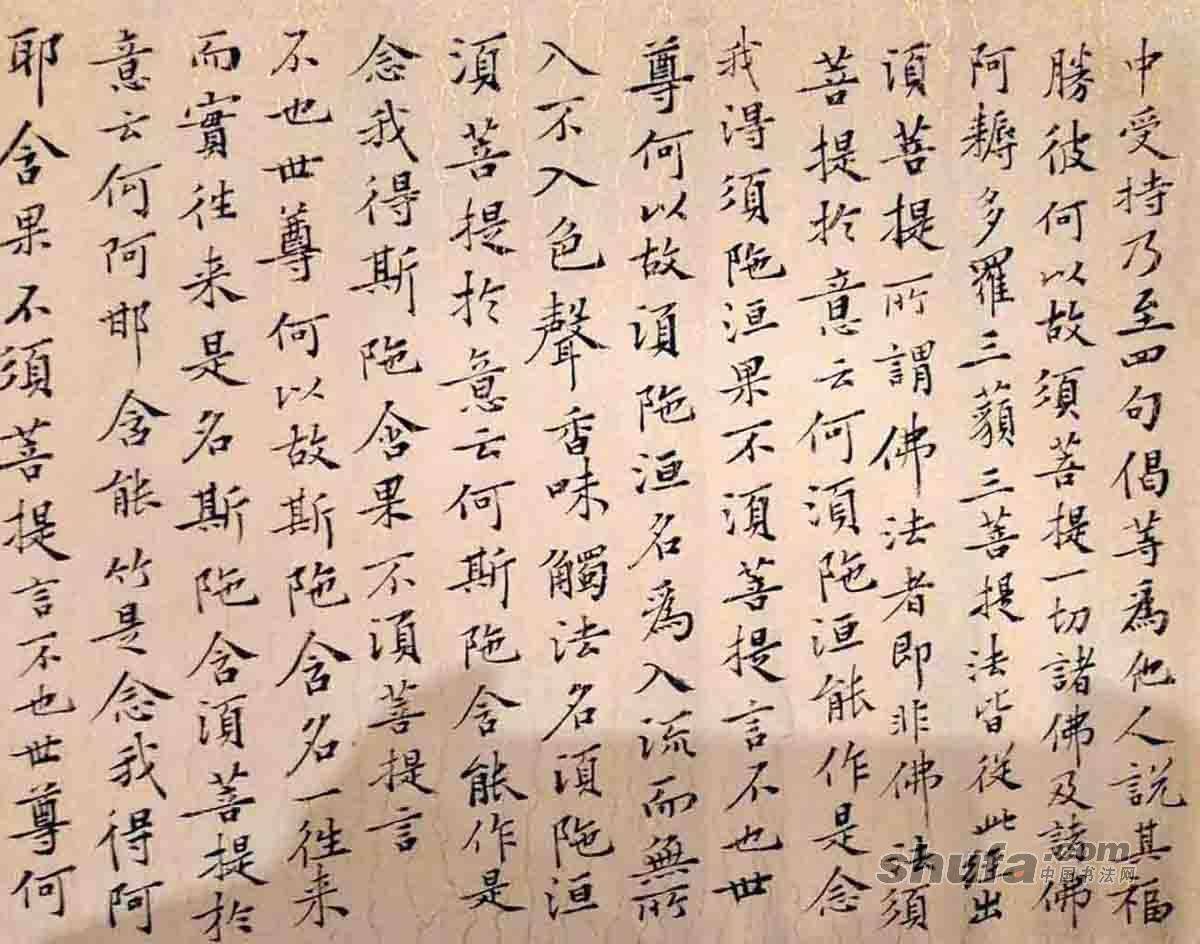 中受持乃至四句偈等為他人說其福
勝彼何以故須菩提一切諸佛及諸佛
阿耨多羅三藐三菩提法皆從此經出
須菩提所謂佛法者即非佛法須
菩提於意云何須陁洹能作是念
我得須陁洹果不須菩提言不也世
尊何以故須陁洹名為入流而無所
入不入色聲香味觸法名須陁洹
須菩提於意云何斯陁含能作是
念我得斯陁含果不須菩提言
不也世尊何以故斯陁含名一往来
而實往来是名斯陁含須菩提於
意云何阿那含能竹是念我得阿
耶含果不須菩提言不也世尊何
shufa.com
中国书法网